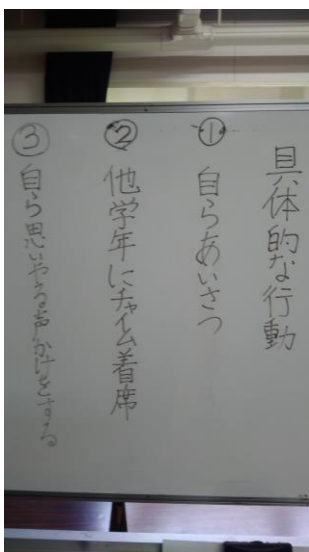 具体的な行動
① 自らあいさつ
② 他学年にチャイム着席
③ 自ら思いやる声かけをする